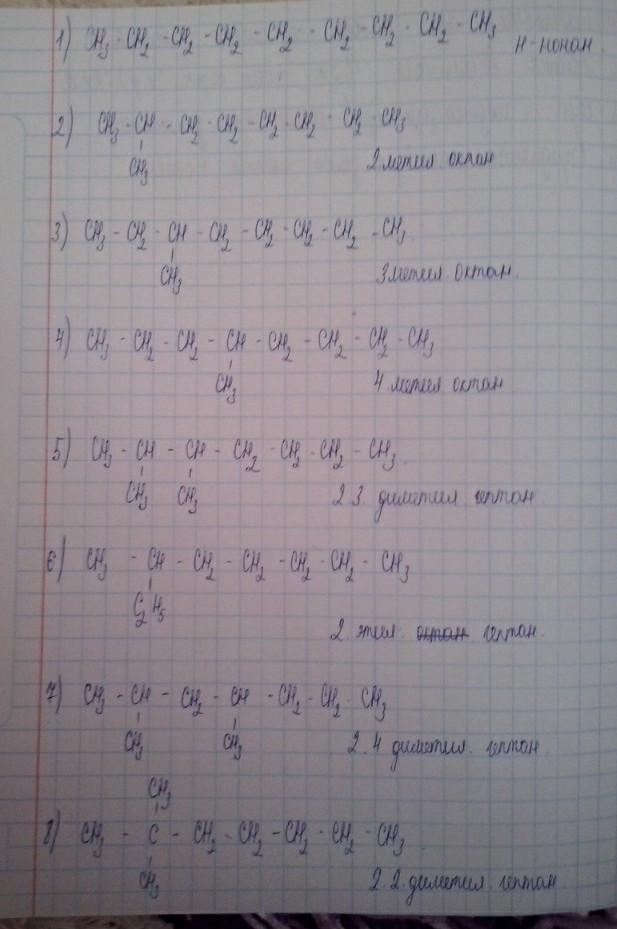 1) CH3 - CH2 - CH2 - CH2 - CH2 - CH2 - CH2 - CH2 - CH3 н-нонан.
2) CH3 - CH - CH2 - CH2 - CH2 - CH2 - CH2 - CH3
CH3 2 метил октан
3) CH3 - CH2 - CH - CH2 - CH2 - CH2 - CH2 - CH3
CH3 3 метил. октан.
4) CH3 - CH2 - CH2 - CH - CH2 - CH2 - CH2 - CH3
CH3 4 метил октан
5) CH3 - CH - CH - CH2 - CH2 - CH2 - CH3
CH3 CH3 2 3. диметил. гептан.
6) CH3 - CH - CH2 - CH2 - CH2 - CH2 - CH3
C2H5
2. этил. октан гептан.
7) CH3 - CH - CH2 - CH - CH2 - CH2 - CH3
CH3 CH3 2. 4 диметил. гептан.
CH3
8) CH3 - C - CH2 - CH2 - CH2 - CH2 - CH3
CH3 2. 2. диметил. гептан.